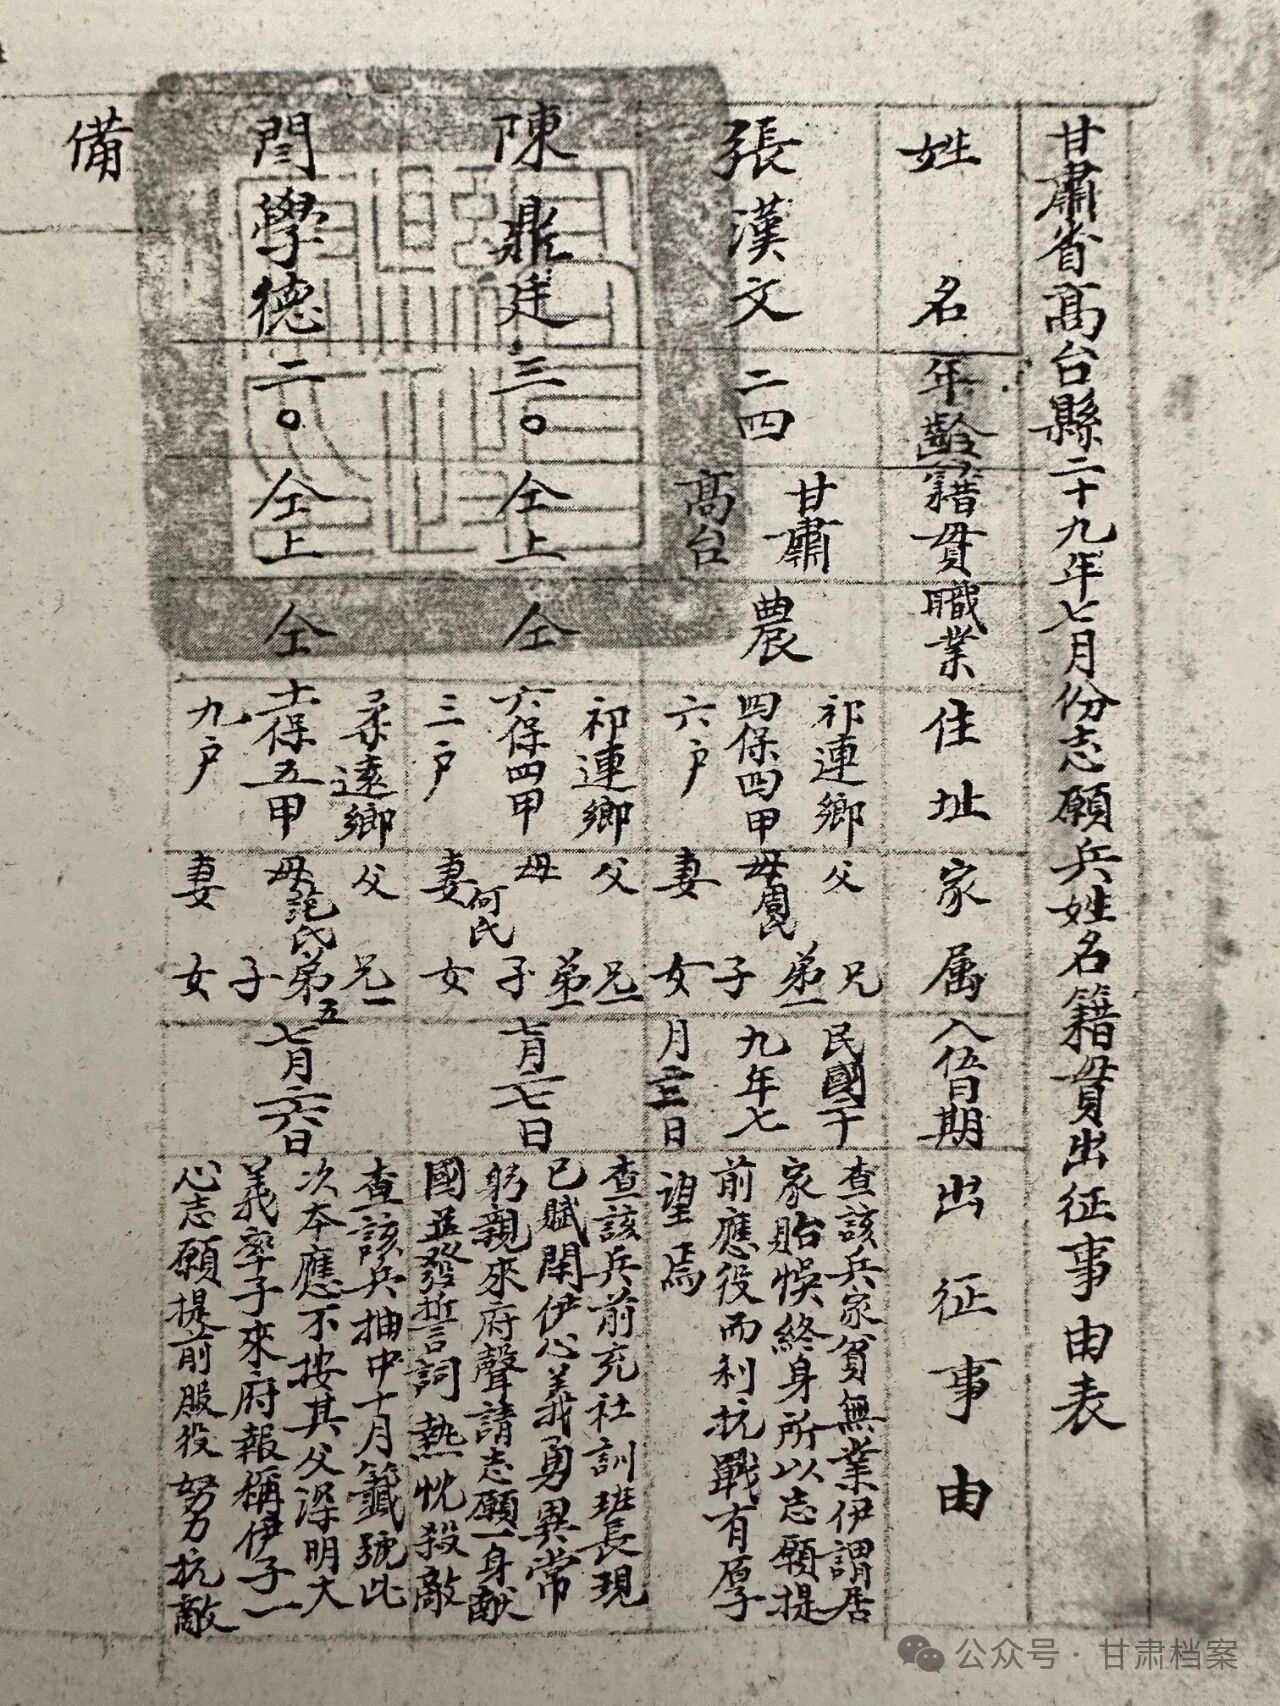 甘肅省高台縣二十九年七月份志願兵姓名籍貫出征事由表
姓名
年齡
籍貫
職業
住址
家属
入伍日期
出征事由
張漢文
二四
甘肅
高台
農
祁連鄉
四保四甲
六户
父
母周氏
妻
兄
弟一
子
女
民國廿
九年七
月三日
查該兵家貧無業伊謂居
家貽悞終身所以志願提
前應役而利抗戰有厚
望焉
陳鼎廷
三〇
仝上
仝
祁連鄉
六保四甲
三户
父
母
妻何氏
兄一
弟一
子
女
七月一七日
查該兵前充社訓班長現
已賦閑伊心義勇異常
躬親來府聲請志願一身献
國並發誓詞熱忱殺敵
閆學德
二〇
仝上
仝
柔遠鄉
十保五甲
九户
父
母氏
妻
兄一
弟五
子
女
七月二六日
查該兵抽中十月籤號此
次本應不按其父深明大
義率子來府報稱伊子一
心志願提前服役努力抗敵
備
公众号·甘肃档案